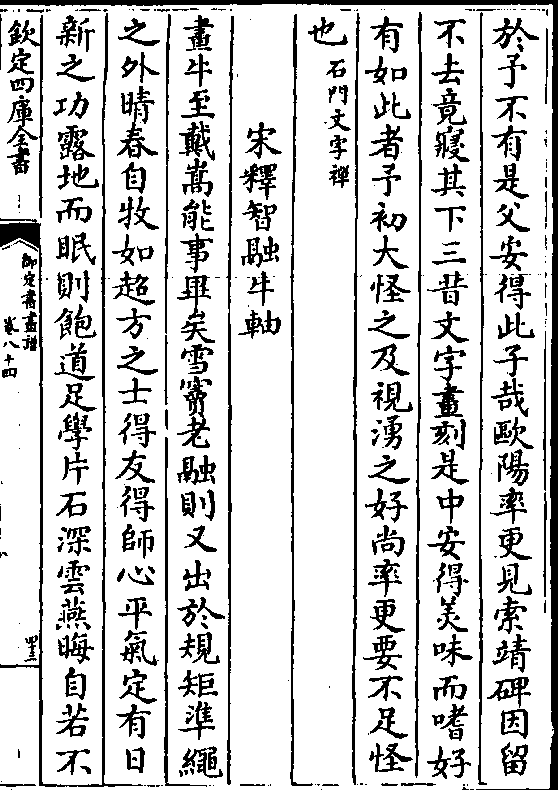 於予不有是父安得此子哉歐陽率更見索靖碑因留
不去竟寢其下三昔文字畫刻是中安得美味而嗜好
有如此者予初大怪之及視湧之好尚率更要不足怪
也石門文字禪
宋釋智融牛軸
畫牛至戴嵩能事畢矣雪竇老融則又出於規矩準繩
之外晴春自牧如超方之士得友得師心平氣定有日
新之功露地而眠則飽道足學片石深雲燕晦自若不
欽定四庫全書
御定書畫譜
卷八十四